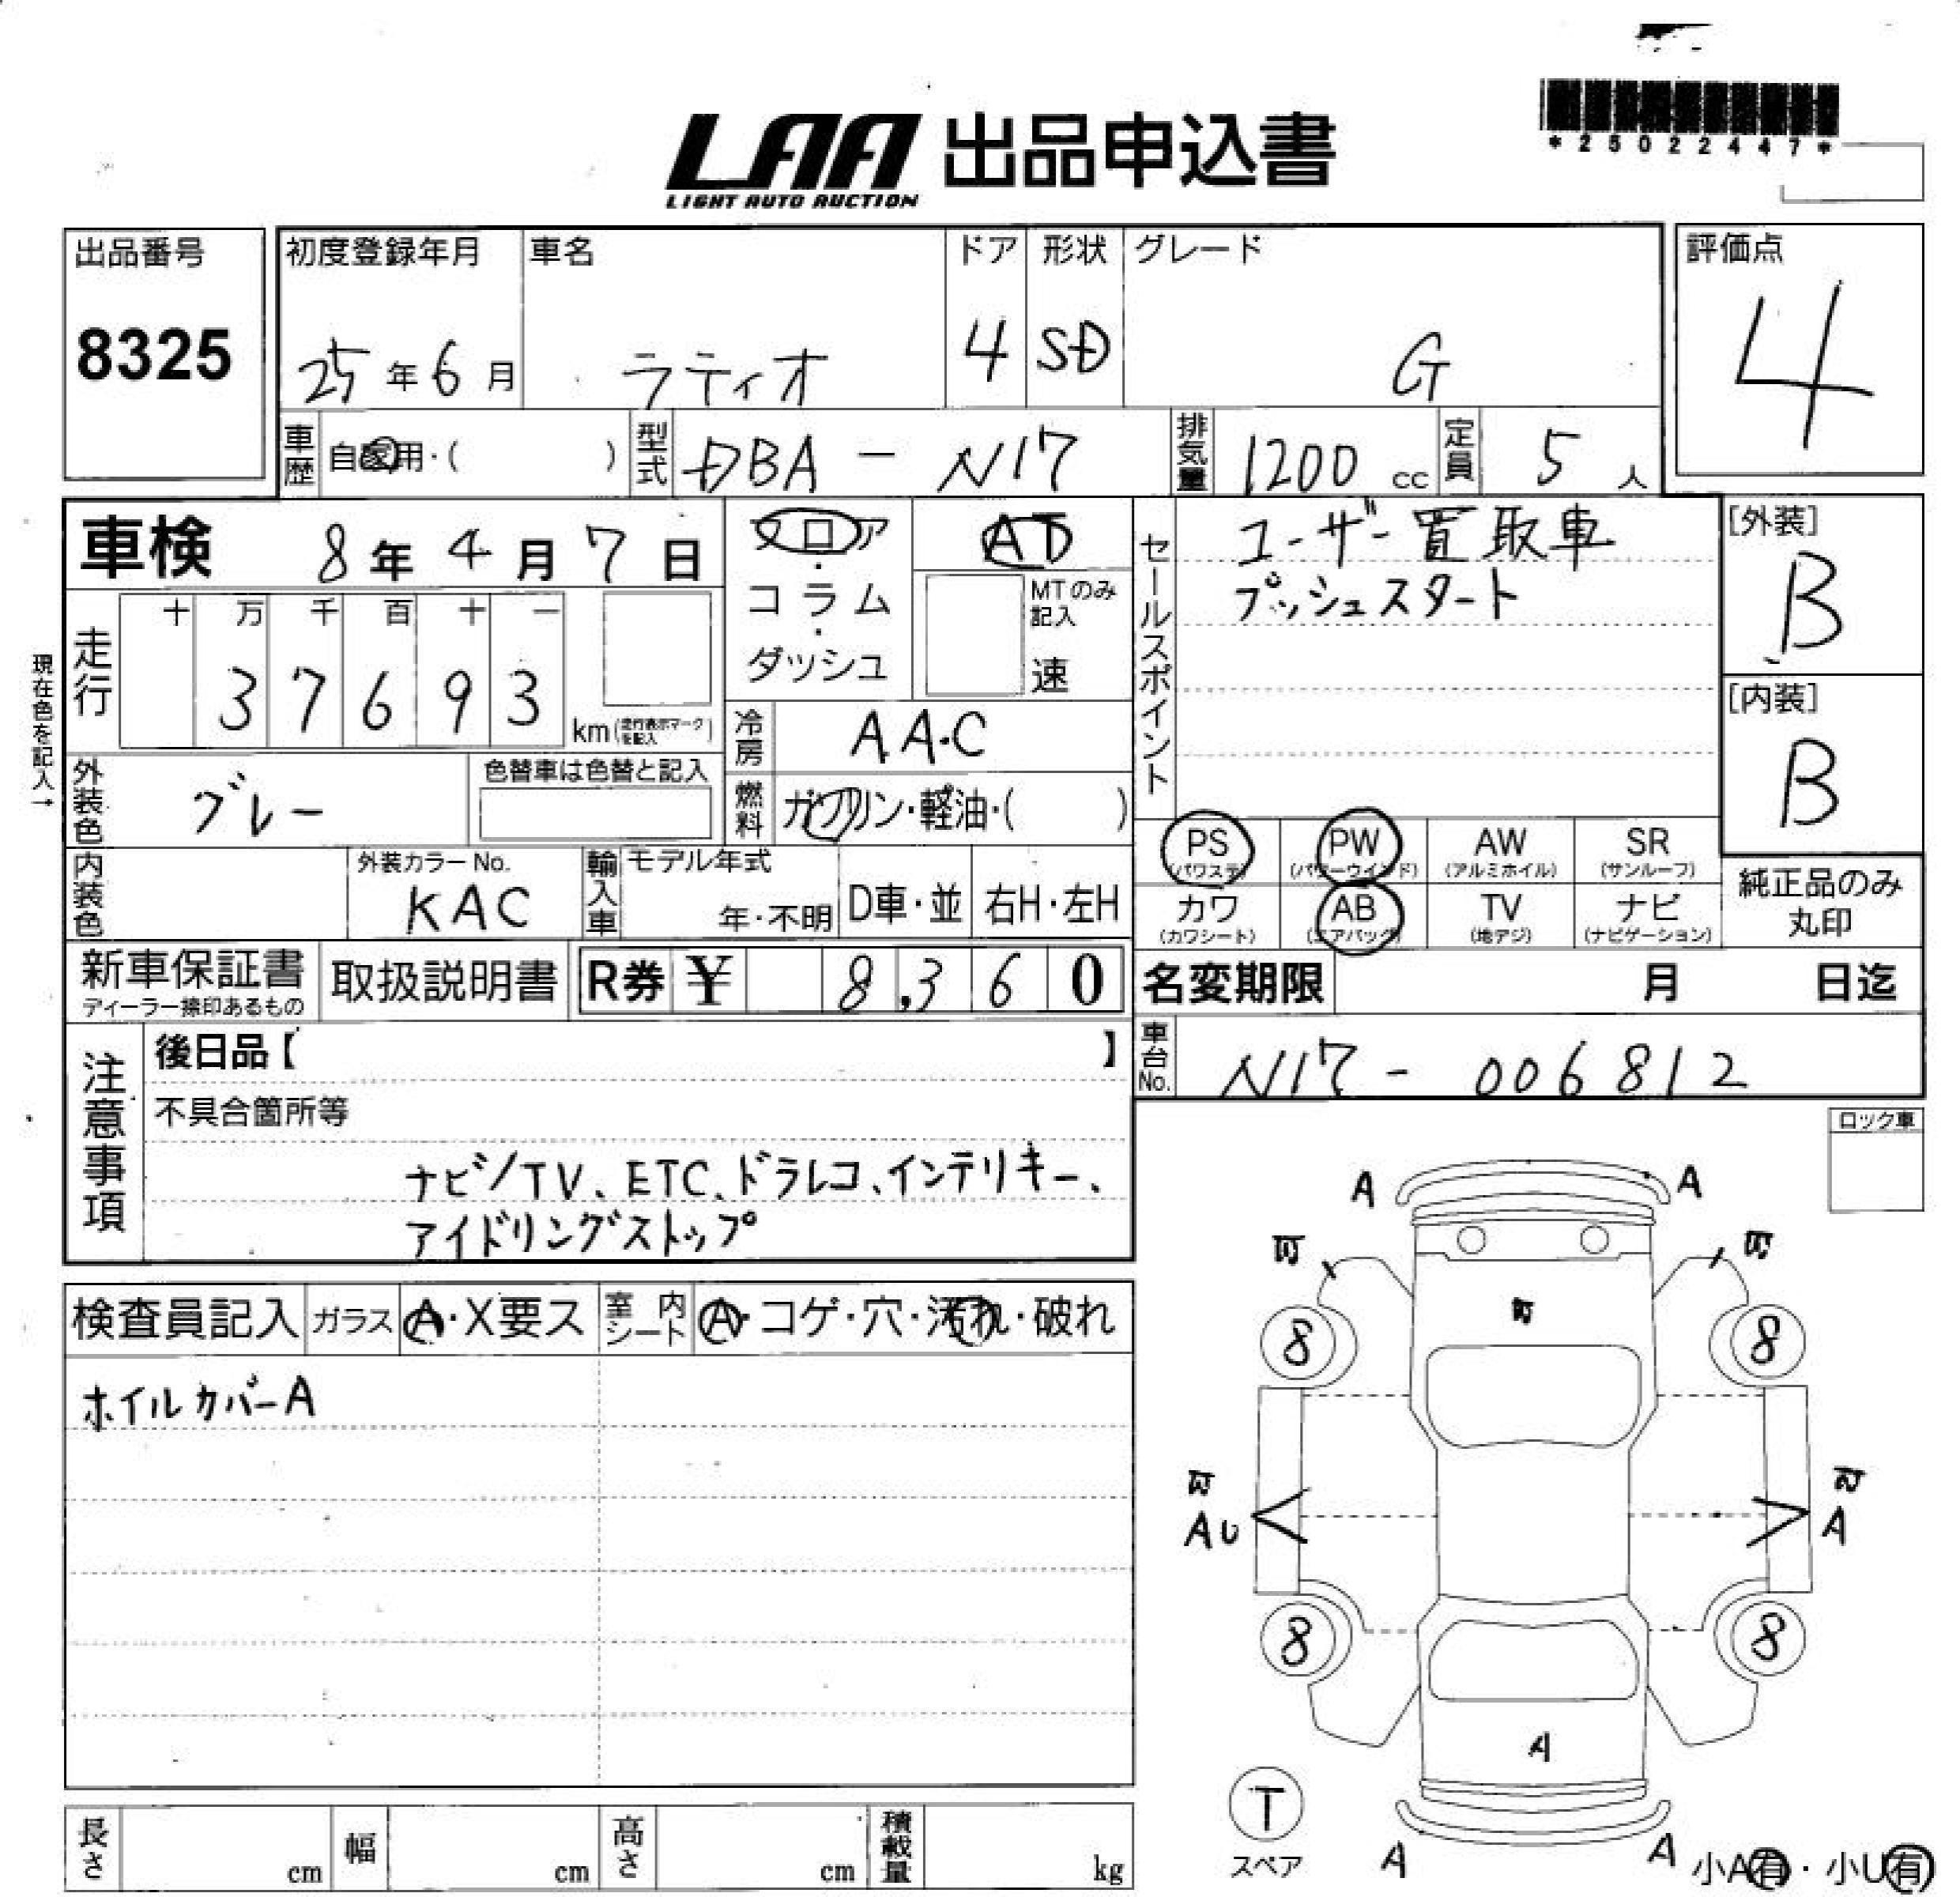 LAA 出品申込書
LIGHT AUTO AUCTION
*25022447*
出品番号
8325
初度登録年月
25年6月
車名
ラティオ
ドア
4
形状
SD
グレード
G
評価点
4
車歴 自家用・( )
型式 DBA - N17
排気量 1200 cc
定員 5 人
車検 8年4月7日
フロア・コラム・ダッシュ
AT
MTのみ記入
速
セールスポイント
ユーザー買取車
プッシュスタート
[外装]
B
[内装]
B
現在色を記入→
走行
十 万 千 百 十 一
3 7 6 9 3
km(走行表示マークを記入)
冷房 AAC
外装色 グレー
色替車は色替と記入
燃料 ガソリン・軽油・( )
PS (パワステ)
PW (パワーウインド)
AW (アルミホイル)
SR (サンルーフ)
カワ (カワシート)
AB (エアバック)
TV (地デジ)
ナビ (ナビゲーション)
純正品のみ
丸印
内装色
外装カラーNo.
KAC
輸入車
モデル年式
年・不明
D車・並
右H・左H
新車保証書
ディーラー捺印あるもの
取扱説明書
R券 ¥ 8,360
名変期限 月 日迄
車台No. N17 - 006812
注意事項
後日品【 】
不具合箇所等
ナビ/TV、ETC、ドラレコ、インテリキー、
アイドリングストップ
ロック車
検査員記入
ガラス A・X要ス
室内シート A・コゲ・穴・汚れ・破れ
ホイルカバーA
A A
8 8
AU A
8 8
A
T
スペア
A A
小A有・小U有
長さ cm
幅 cm
高さ cm
積載量 kg